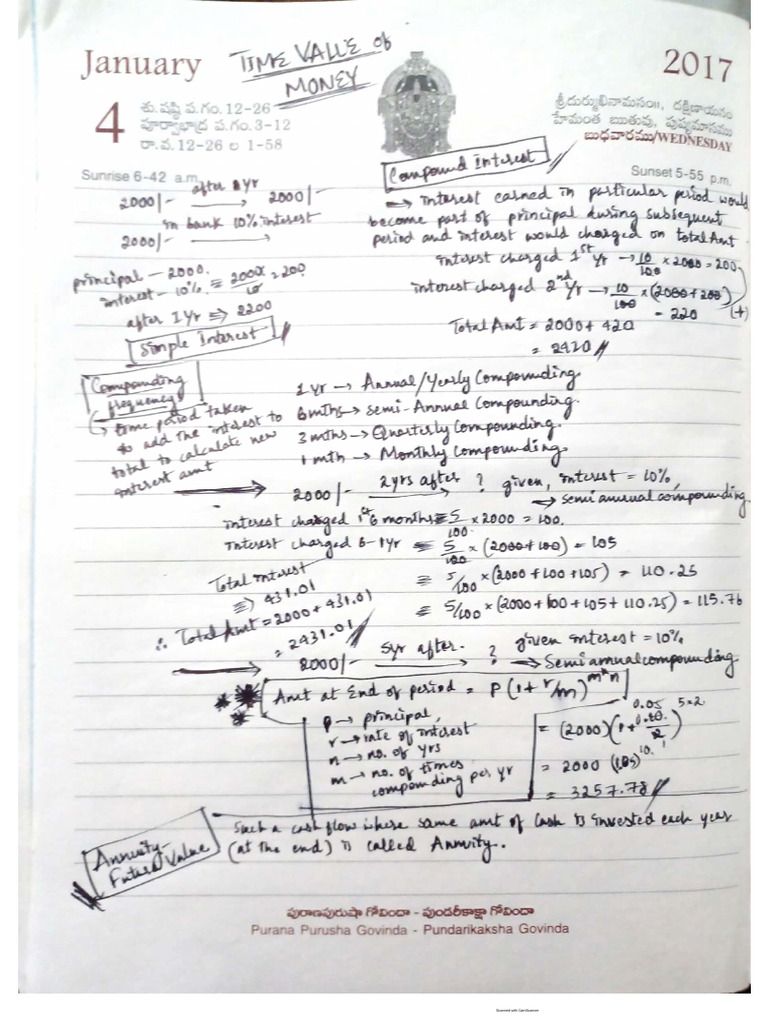 January
TIME VALUE OF
MONEY
2017
4
శు. షష్ఠి ప.గం. 12-26
పూర్వాభాద్ర ప.గం. 3-12
రా.వ. 12-26 ల 1-58
శ్రీదుర్ముఖినామసం॥, దక్షిణాయనం
హేమంత ఋతువు, పుష్యమాసము
బుధవారము/WEDNESDAY
Sunrise 6-42 a.m.
Sunset 5-55 p.m.
2000/- after 1 yr → 2000/-
2000/- in bank 10% interest →
principal – 2000.
interest – 10% = 2000x/10 = 200
after 1 Yr ⇒ 2200
Simple Interest
Compound Interest
→ interest earned in particular period would
become part of principal during subsequent
period and interest would charged on total Amt
interest charged 1st yr → 10/100 × 2000 = 200
interest charged 2nd yr → 10/100 × (2000+200)
= 220 (+)
Total Amt = 2000 + 420
= 2420
Compounding
frequency
→ time period taken
to add the interest to
total to calculate new
interest amt
1 yr → Annual/Yearly Compounding.
6 mths → semi-Annual Compounding.
3 mths → Quarterly Compounding.
1 mth → Monthly Compounding.
→ 2000/- 2 yrs after → ? given, interest = 10%,
→ semi annual compounding
interest charged 1st 6 months = 5/100 × 2000 = 100.
interest charged 6-1yr = 5/100 × (2000+100) = 105
= 5/100 × (2000+100+105) = 110.25
= 5/100 × (2000+100+105+110.25) = 115.76
Total interest
⇒ 431.01
∴ Total Amt = 2000 + 431.01
= 2431.01
→ 2000/- 5yr after. → ? given interest = 10%
→ Semi annual compounding
Amt at End of period = P(1 + r/m)^m*n
P → principal,
r → rate of interest
n → no. of yrs
m → no. of times
compounding per yr
= (2000)(1+0.10/2) 0.05 5×2
= 2000 (1.05)^10
= 3257.78
Annuity-
Future Value
Such a cash flow where same amt of cash is invested each year
(at the end) is called Annuity.
పురాణపురుషా గోవిందా - పుండరీకాక్షా గోవిందా
Purana Purusha Govinda - Pundarikaksha Govinda
Scanned with CamScanner